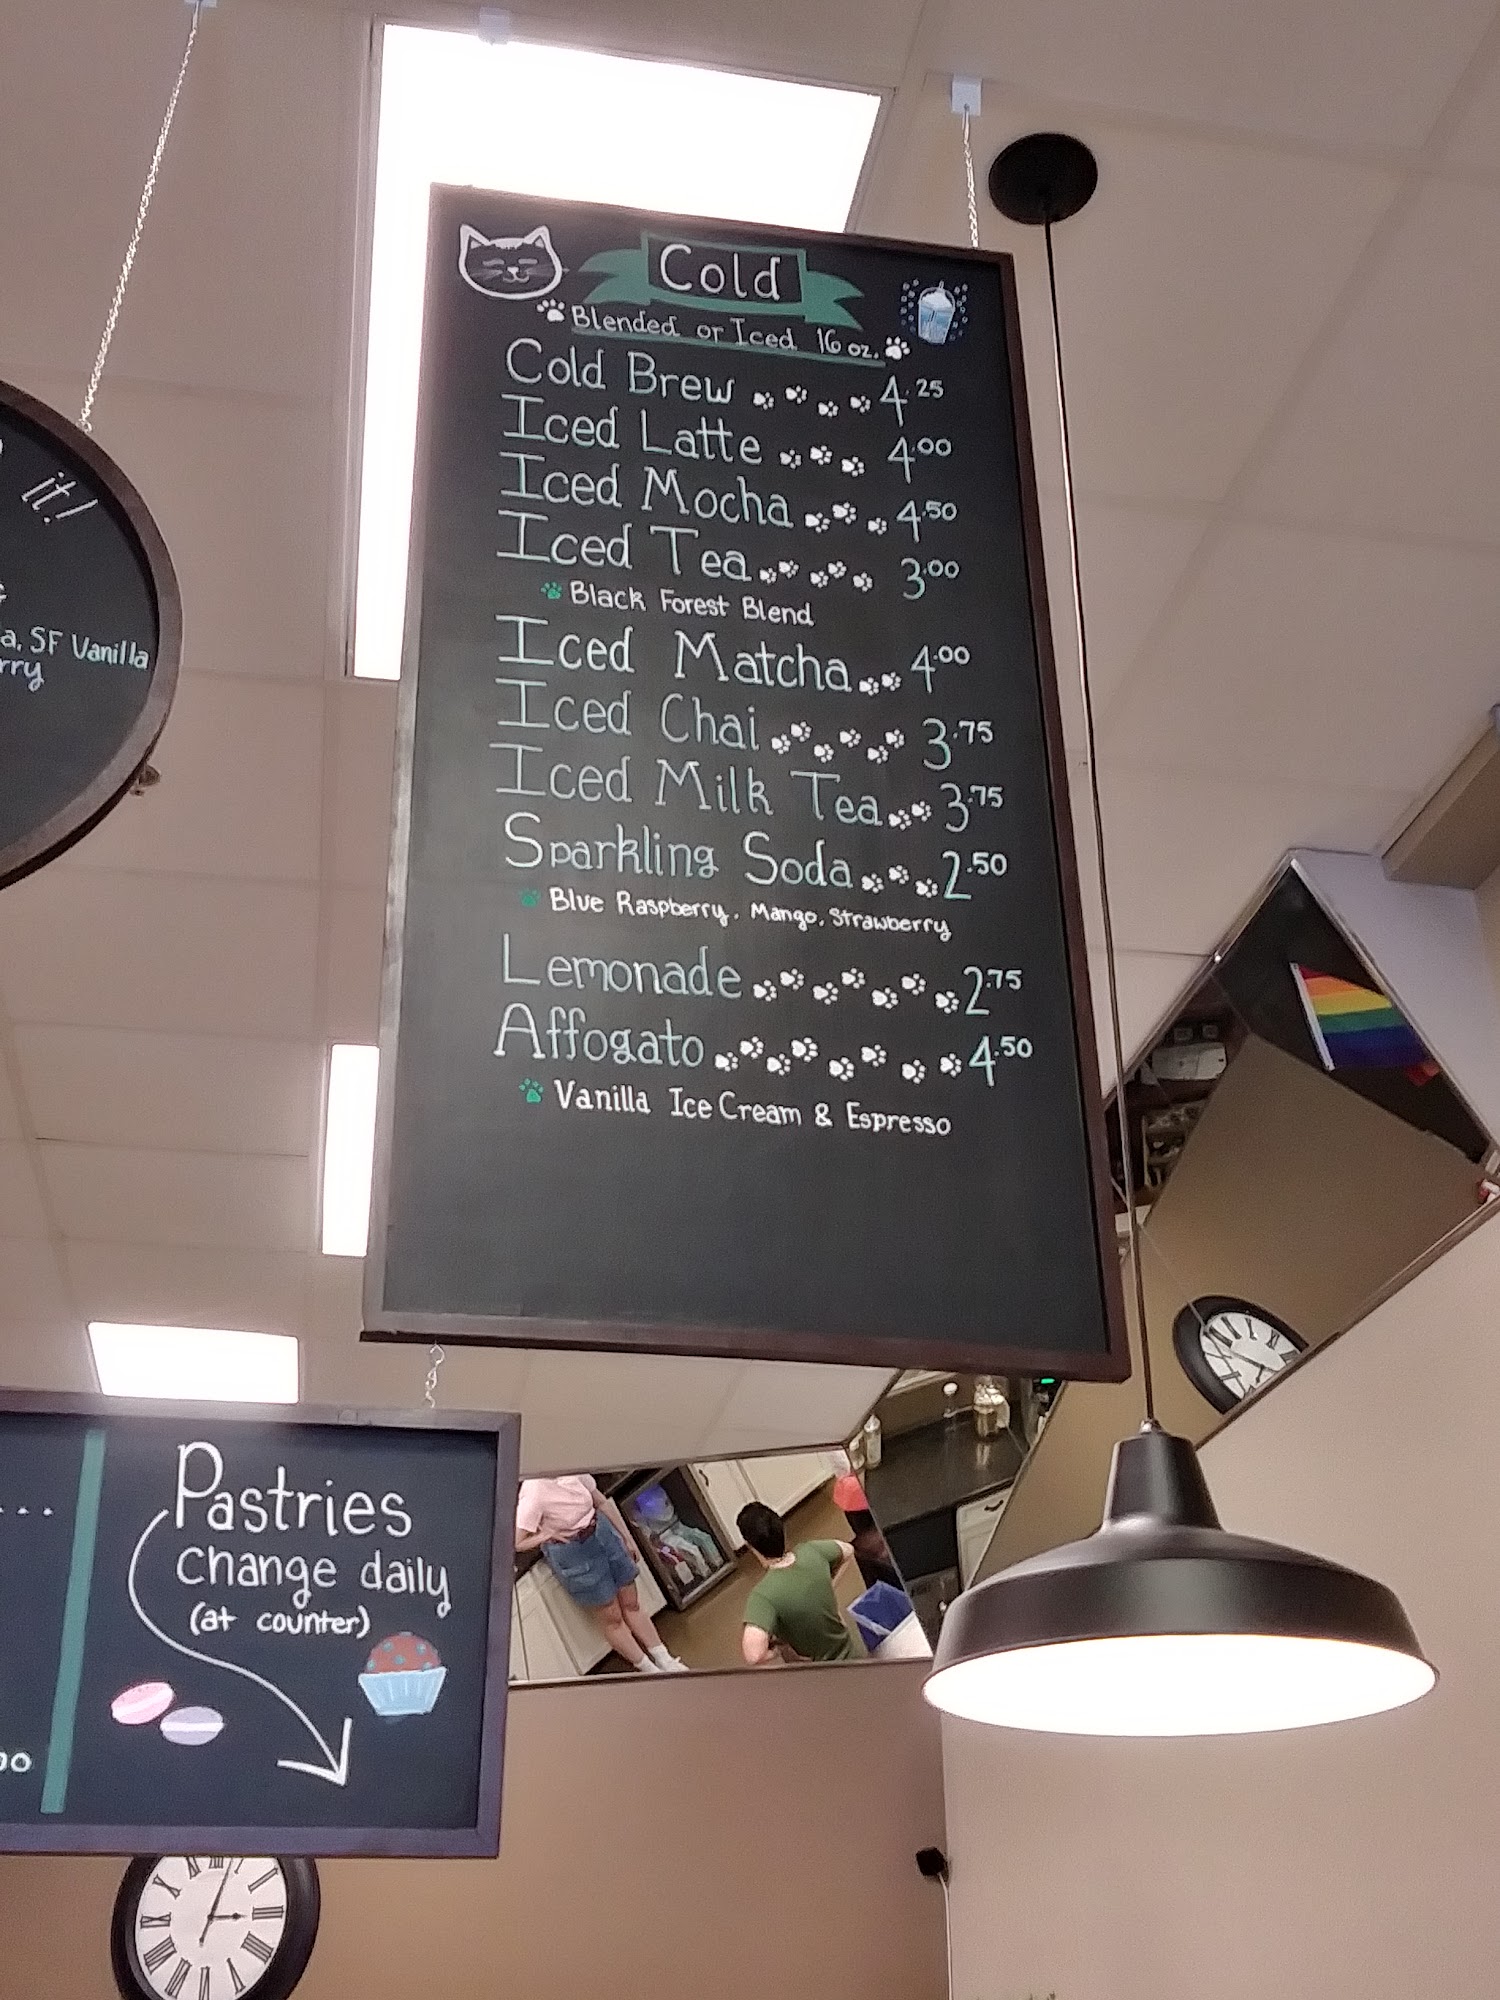 it!
SF Vanilla
Cold
Blended or Iced 16 oz.
Cold Brew 4.25
Iced Latte 4.00
Iced Mocha 4.50
Iced Tea 3.00
Black Forest Blend
Iced Matcha 4.00
Iced Chai 3.75
Iced Milk Tea 3.75
Sparkling Soda 2.50
Blue Raspberry, Mango, Strawberry
Lemonade 2.75
Affogato 4.50
Vanilla Ice Cream & Espresso
Pastries
change daily
(at counter)